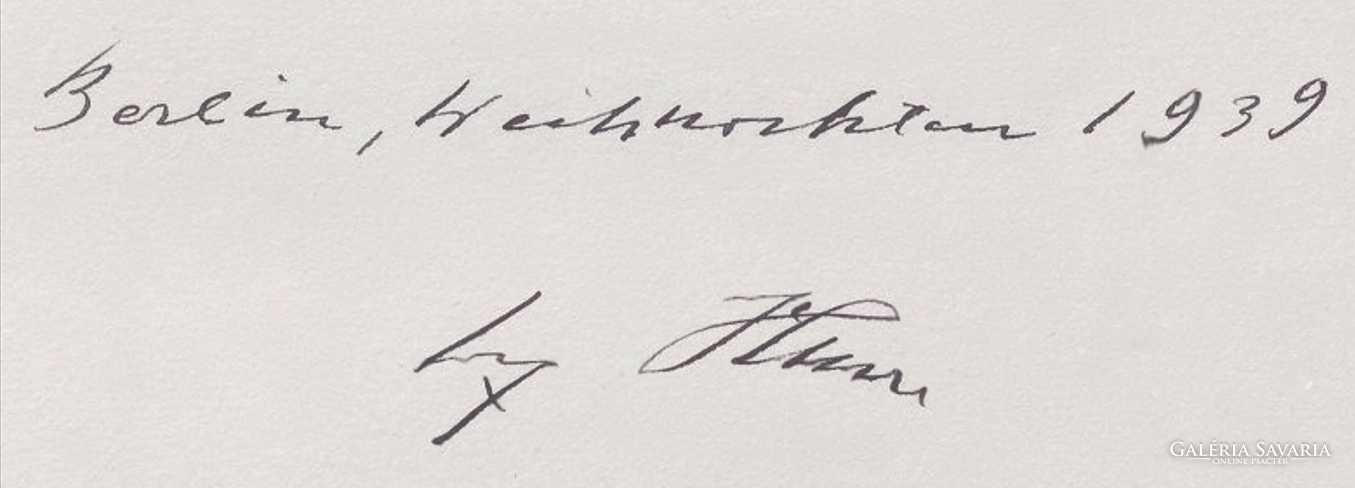 Berlin, Weihnachten 1939
GALÉRIA SAVARIA
ONLINE PIACTÉR